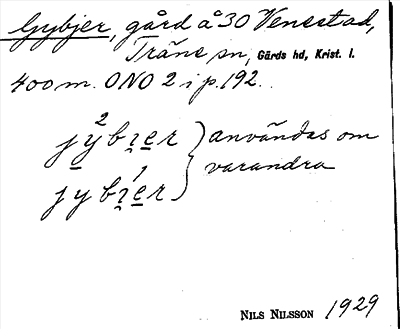 Gybjer, gård å 30 Venestad,
Träne sn, Gärds hd, Krist. l.
400 m. ONO 2 i p. 192.
jy̲²bi̯e̲r } användas om
jybi̯e̲¹r } varandra
NILS NILSSON 1929